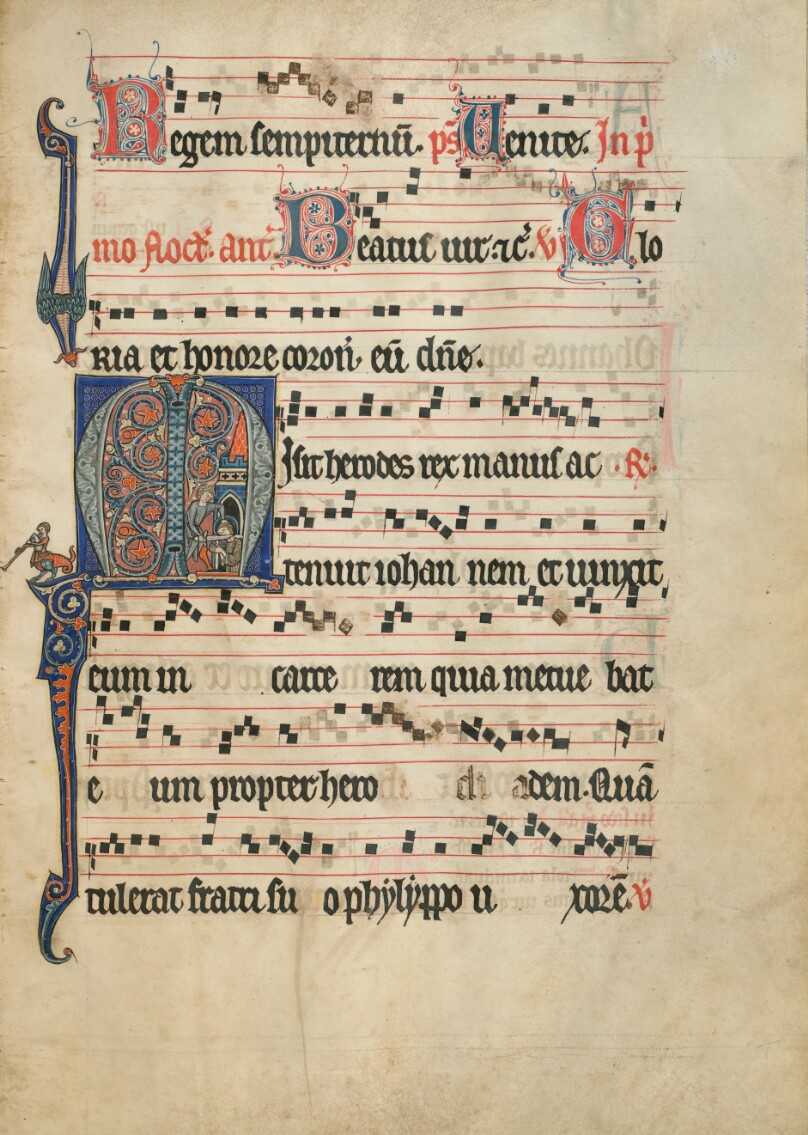 Regem sempiternū. ps̄ Venite. In p̍
mo noct̄. ant̄. Beatus uir. ⁊c̄. V Glo
ria et honore coron̄. eū dn̄e.
Misit herodes rex manus ac R.
tenuit iohan nem et uinxit
eum in carce rem quia metue bat
e um propter hero di adem. Quā
tulerat fratri su o phylyppo u xorē. V